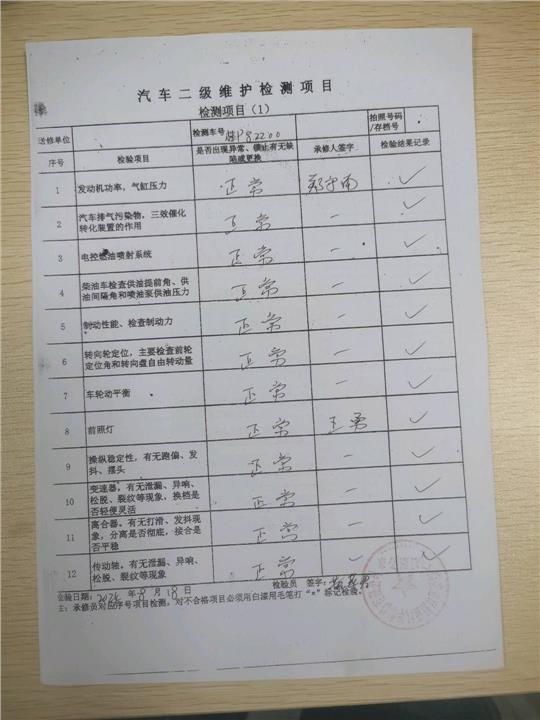 汽车二级维护检测项目
检测项目（1）
送修单位 检测车号 P82200 拍照号码/存档号
序号 检验项目 是否出现异常、锁止有无缺陷或更换 承修人签字 检验结果记录
1 发动机功率，气缸压力 正常 ✓
2 汽车排气污染物，三效催化
转化装置的作用 正常 — ✓
3 电控燃油喷射系统 正常 — ✓
4 柴油车检查供油提前角、供
油间隔角和喷油泵供油压力 正常 — ✓
5 制动性能、检查制动力 正常 — ✓
6 转向轮定位，主要检查前轮
定位角和转向盘自由转动量 正常 — ✓
7 车轮动平衡 正常 — ✓
8 前照灯 正常 王勇 ✓
9 操纵稳定性，有无跑偏、发
抖、摆头 正常 — ✓
10 变速器，有无泄漏、异响、
松脱、裂纹等现象，换档是
否轻便灵活 正常 — ✓
11 离合器，有无打滑、发抖现
象，分离是否彻底，接合是
否平稳 正常 — ✓
12 传动轴，有无泄漏、异响、
松脱、裂纹等现象 正常 — ✓
检验日期：2024 年 8 月 18 日 检验员 签字：
主：承修员对应序号项目检测，对不合格项目必须用白漆用毛笔打“×”标记检验。